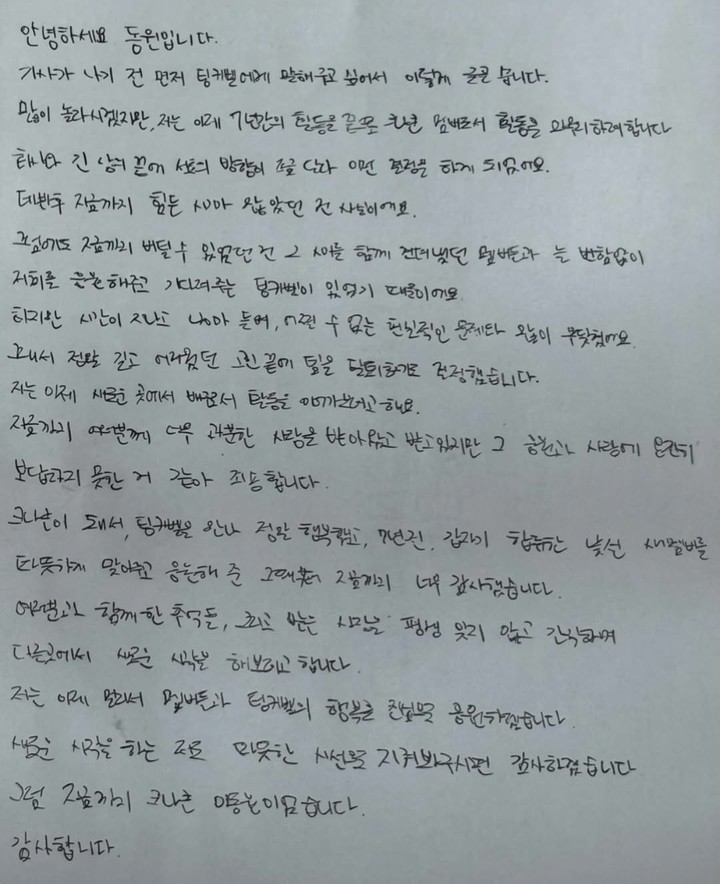 안녕하세요 동원입니다.
기사가 나기 전 먼저 팅커벨에게 말해주고 싶어서 이렇게 글을 씁니다.
많이 놀라시겠지만, 저는 이제 7년간의 활동을 끝으로 크나큰 멤버로서 활동을 마무리하려합니다
하지만 긴 상의 끝에 서로의 방향이 조금 달라 이런 결정을 하게 되었어요.
데뷔후 지금까지 힘든 시간이 많았던 건 사실이에요.
그럼에도 지금까지 버틸 수 있었던 건 그 시간을 함께 견뎌냈던 멤버들과 늘 변함없이
저희를 응원해주고 기다려주는 팅커벨이 있었기 때문이에요
하지만 시간이 지나고 나이가 들며, 어쩔 수 없는 현실적인 문제와 많이 부딪혔어요.
그래서 정말 길고 어려웠던 고민 끝에 팀을 탈퇴하기로 결정했습니다.
저는 이제 새로운 곳에서 배우로서 활동을 이어가보려고해요.
지금까지 여러분께 너무 과분한 사랑을 받아왔고 받고있지만 그 응원과 사랑에 온전히
보답하지 못한 거 같아 죄송합니다.
크나큰이 돼서, 팅커벨을 만나 정말 행복했고, 7년전, 갑자기 합류한 낯선 새멤버를
따뜻하게 맞아주고 응원해 준 그때부터 지금까지 너무 감사했습니다.
여러분과 함께한 추억들, 그리고 받은 사랑을 평생 잊지 않고 간직하며
다른곳에서 새로운 시작을 해보려고 합니다.
저는 이제 멀리서 멤버들과 팅커벨의 행복을 진심으로 응원하겠습니다.
새로운 시작을 하는 저를 따뜻한 시선으로 지켜봐주시면 감사하겠습니다
그럼 지금까지 크나큰 이동원이었습니다.
감사합니다.